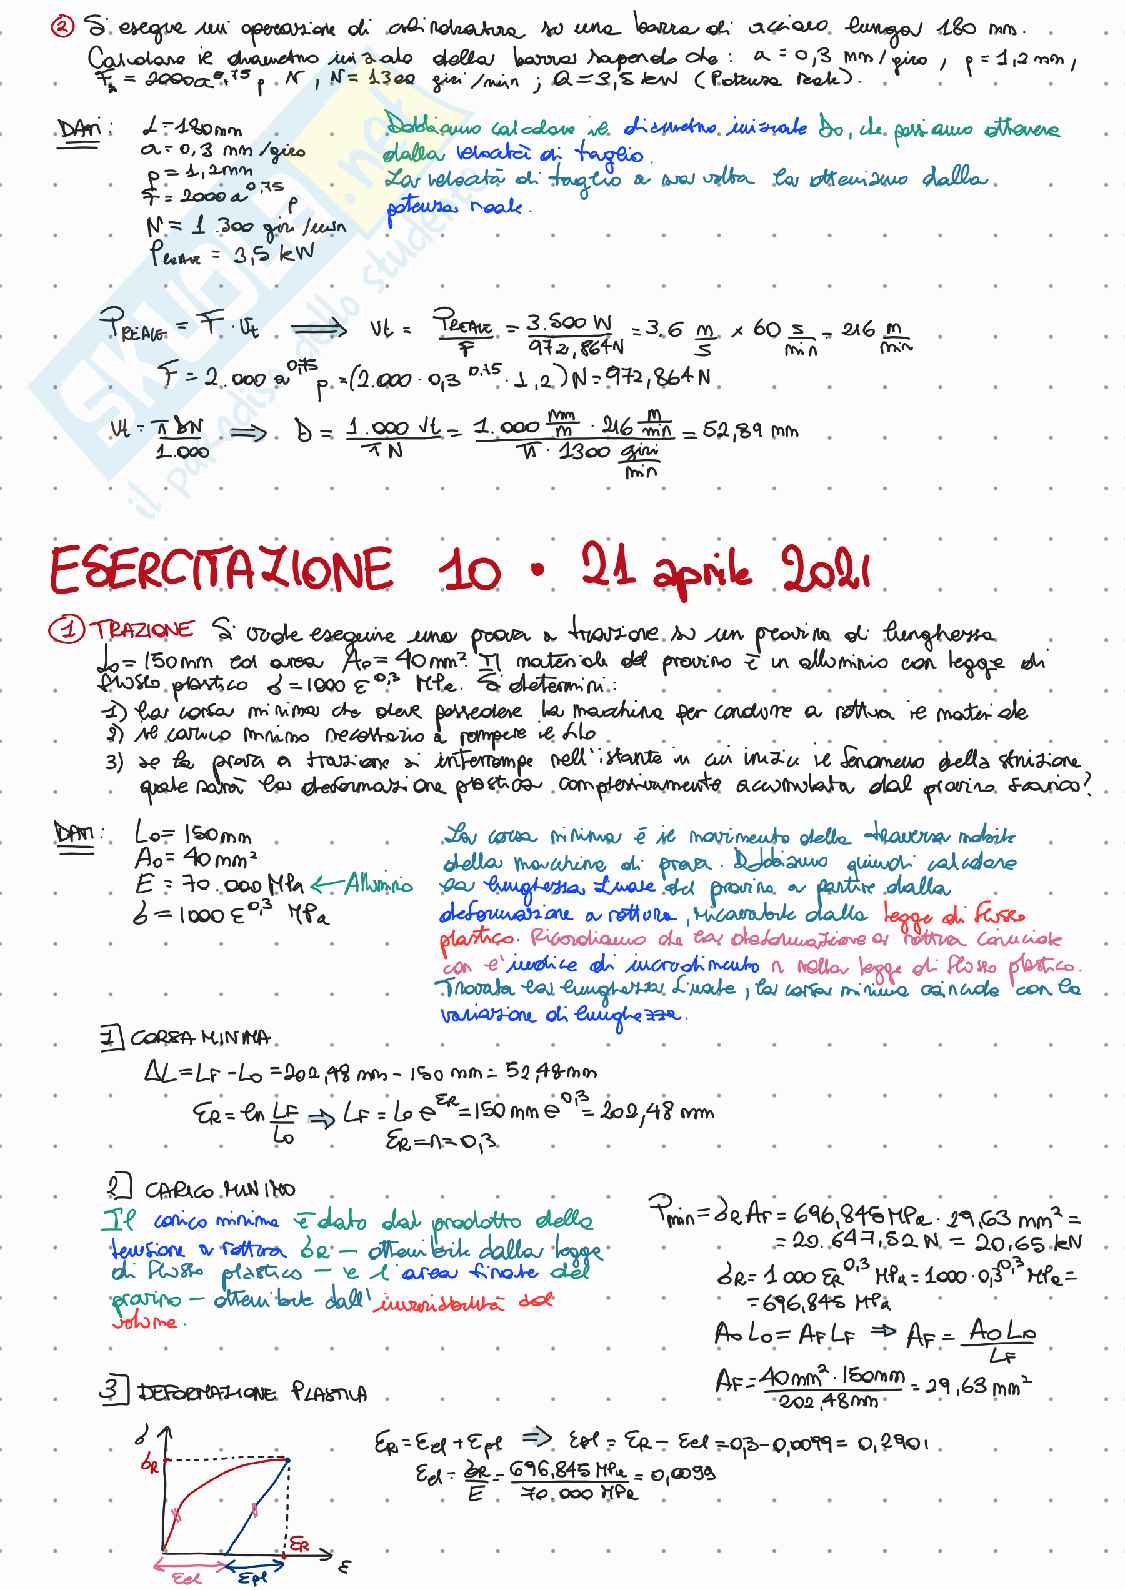 ② Si esegue un'operazione di cilindratura su una barra di acciaio lunga 180 mm.
Calcolare il diametro iniziale della barra sapendo che: a = 0,3 mm/giro, p = 1,2 mm,
F = 2000 a^0,75 p N, N = 1300 giri/min; Q = 3,5 kW (Potenza reale).
DATI: L = 180 mm
a = 0,3 mm/giro
p = 1,2 mm
F = 2000 a^0,75 p
N = 1.300 giri/min
P_REALE = 3,5 kW
Dobbiamo calcolare il diametro iniziale D0, che possiamo ottenere
dalla velocità di taglio.
La velocità di taglio a sua volta la otteniamo dalla
potenza reale.
P_REALE = F · Vt ⟹ Vt = P_REALE / F = 3.500 W / 972,864 N = 3,6 m/s × 60 s/min = 216 m/min
F = 2.000 a^0,75 p = (2.000 · 0,3^0,75 · 1,2) N = 972,864 N
Vt = π D N / 1.000 ⟹ D = 1.000 Vt / π N = 1.000 mm/m · 216 m/min / π · 1300 giri/min = 52,89 mm
SKUOLA.net
il paradiso dello studente
ESERCITAZIONE 10 • 21 aprile 2021
① TRAZIONE Si vuole eseguire una prova a trazione su un provino di lunghezza
L0 = 150 mm ed area A0 = 40 mm². Il materiale del provino è in alluminio con legge di
flusso plastico σ = 1000 ε^0,3 MPa. Si determini:
1) la corsa minima che deve possedere la macchina per condurre a rottura il materiale
2) il carico minimo necessario a rompere il filo
3) se la prova a trazione si interrompe nell'istante in cui inizia il fenomeno della strizione
quale sarà la deformazione plastica complessivamente accumulata dal provino scarico?
DATI: L0 = 150 mm
A0 = 40 mm²
E = 70.000 MPa ← Alluminio
σ = 1000 ε^0,3 MPa
La corsa minima è il movimento della traversa mobile
della macchina di prova. Dobbiamo quindi calcolare
la lunghezza finale del provino a partire dalla
deformazione a rottura, ricavabile dalla legge di flusso
plastico. Ricordiamo che la deformazione a rottura coincide
con l'indice di incrudimento n nella legge di flusso plastico.
Trovata la lunghezza finale, la corsa minima coincide con la
variazione di lunghezza.
1] CORSA MINIMA
ΔL = LF - L0 = 202,48 mm - 150 mm = 52,48 mm
εR = ln LF/L0 ⇒ LF = L0 e^εR = 150 mm e^0,3 = 202,48 mm
εR = n = 0,3
2] CARICO MINIMO
Il carico minimo è dato dal prodotto della
tensione a rottura σR – ottenibile dalla legge
di flusso plastico – e l'area finale del
provino – ottenibile dall'invariabilità del
volume.
Pmin = σR AF = 696,845 MPa · 29,63 mm² =
= 20.647,52 N = 20,65 kN
σR = 1000 εR^0,3 MPa = 1000 · 0,3^0,3 MPa =
= 696,845 MPa
A0 L0 = AF LF ⇒ AF = A0 L0 / LF
AF = 40 mm² · 150 mm / 202,48 mm = 29,63 mm²
3] DEFORMAZIONE PLASTICA
εR = εel + εpl ⇒ εpl = εR - εel = 0,3 - 0,0099 = 0,2901
εel = σR / E = 696,845 MPa / 70.000 MPa = 0,0099
σ
σR
εR
ε
εel
εpl